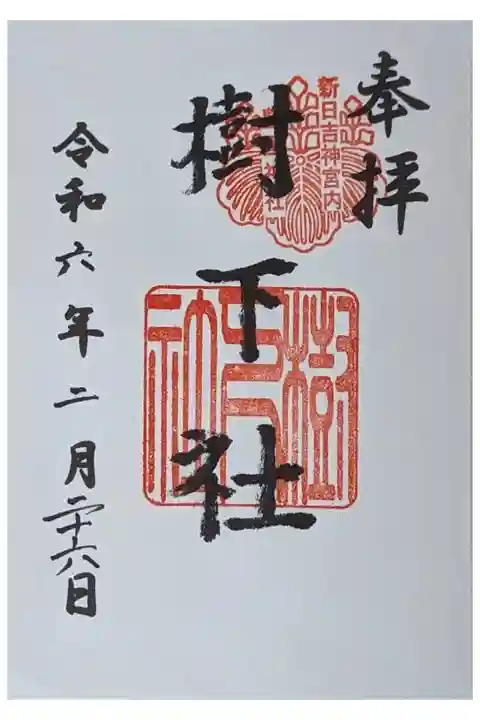 奉拝
新日吉神宮内
樹下社
樹下社
令和六年二月二十六日